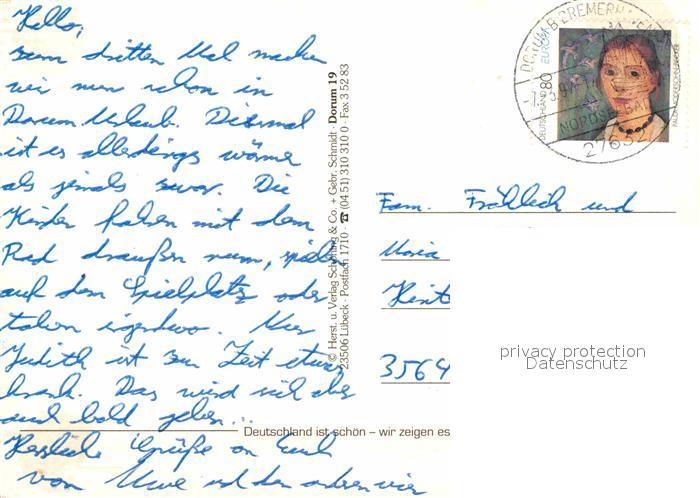 Hallo,
zum dritten Mal machen
wir nun schon in
Dorum Urlaub. Diesmal
ist es allerdings wärmer
als jemals zuvor. Die
Kinder fahren mit dem
Rad draußen rum, spielen
auf dem Spielplatz oder
toben irgendwo. Nur
Judith ist zur Zeit etwas
krank. Das wird sich aber
auch bald geben...
Herzliche Grüße an Euch
von Uwe und den anderen vier
© Herst. u. Verlag Schöning & Co. + Gebr. Schmidt · Dorum 19
23506 Lübeck · Postfach 1710 · ☎ (04 51) 310 310 0 · Fax 3 52 83
Deutschland ist schön – wir zeigen es
DEUTSCHLAND 80 EUROPA
PAULA MODERSOHN-BECKER
DORUM
NORDSEEBAD
27632
Fam. Fröhlich und
Maria
3564
privacy protection
Datenschutz